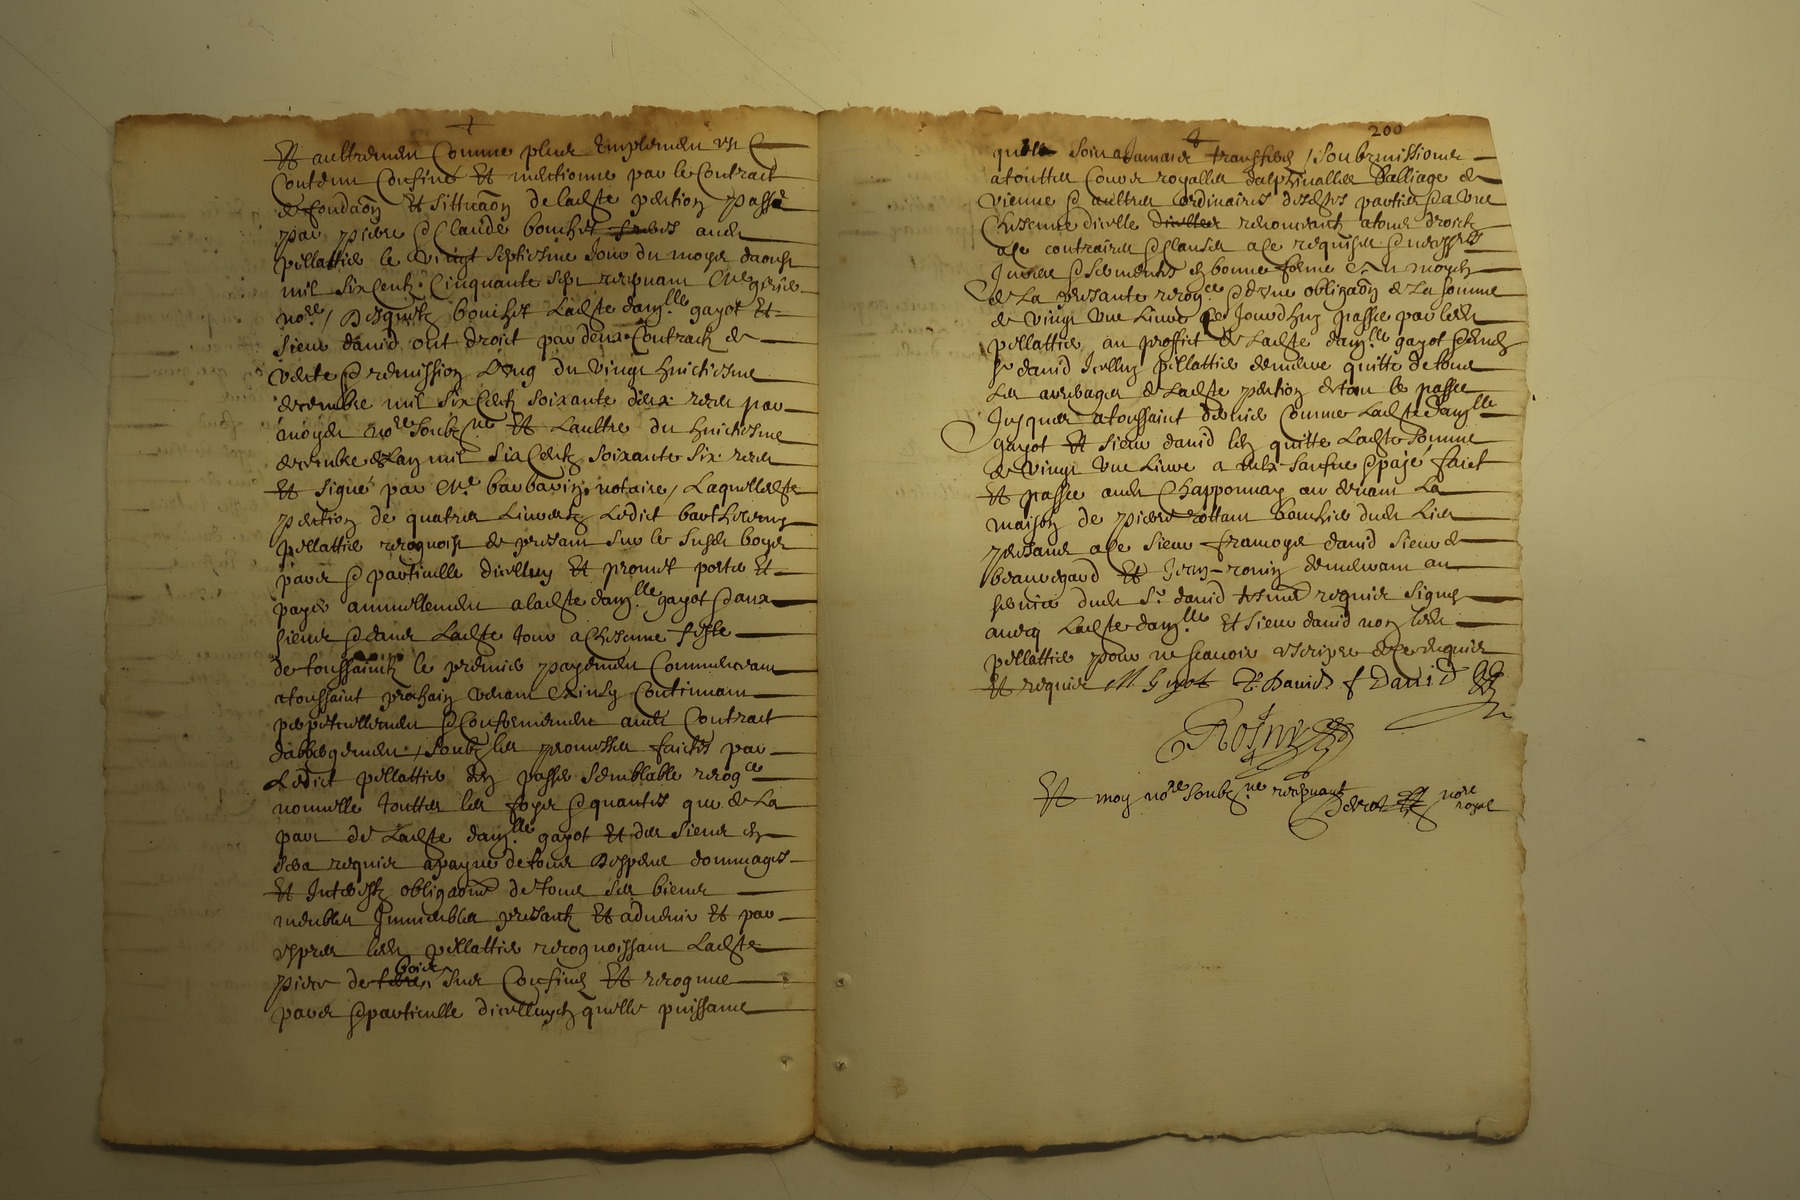 Et aultremen Comme plus emplemen est
Contenu Confiné Et mentionné par le Contract
de fondaon Et sittuaon de ladite pention passé
par pierre & Claude bouchet freres audit
pellattier le vingt septiesme Jour du moys daoust
mil six Centz Cinquante sept recepvant Me
nore / Desquelz bouchet Ladite damlle gayot Et
sieur david ont droict par deux Contractz de
vente & remission Lung du vingt huictiesme
decembre mil six Centz soixante deux receu par
moydit nore soubzne Et Laultre du huictiesme
decembre de Lan mil six Centz soixante six receu
Et signé par Me barbarin notaire / Laquelle dite
pention de quatre Livres Ledict barthelemy
pellattier recognoist de presant sur les susdit boys
paves & particulle dicelluy Et promet porter Et
payer annuellement a ladite damlle gayot & aux
sieurs & audit Ladite Jour a Chescune feste
de toussainctz le premier payement Commencera
a toussaint prochain venant Et ainsy Continuant
perpetuellement & Conformement audit Contract
dabbergement / soubz les promesses faictes par
Ledict pellattier den passer semblable recogce
nouvelle touttes les foys & quantes que de La
part de Ladite damlle gayot Et des sieurs en
sera requis a payne de tous Despens dommages
Et Interestz obligaons de tous ses biens
meubles Immeubles presantz Et advenir Et par
expres ledit pellattier recognoissant Ladite
piece de terre boys sus Confiné Et recognue
paves & particulle dicelluy quelle puissance
200
quelle soit a Jamais transferé / soubzmissions
a touttes Cours royalles dalphinalles Balliage de
vienne & aultres ordinaires desdites parties & a une
Chescune dicelle dicelles renoncent a tous droictz
a ce contraires & clauses a ce requises &
Jures & sermentz en bonne forme & moyen
de La presante recogce & dune obligaon de La somme
de vingt une Livre Ce Jourdhuy passée par ledit
pellattier au proffict de Ladite damlle gayot & dudit
sr david Icelluy pellattier demeure quitte de tous
Les arrerages de Ladite pention de tout le passé
Jusques a toussaint dernier Comme Ladite damlle
gayot Et sieur david len quitte Ladite somme
de vingt une Livre faict
Et passé audit Chapponnay au devant La
maison de pierre rottant bouchier dudit Lieu
presans a ce sieur francoys david sieur de
beauregard Et Jean ronin demeurant au
service dudit sr david tesmoins requis signés
avecq Ladite damlle Et sieur david non ledit
pellattier pour ne scavoir escripre de ce enquis
Et requis M Gayot P. David f David
Ronin
Et moy nore soubzne recepvant nore
royal